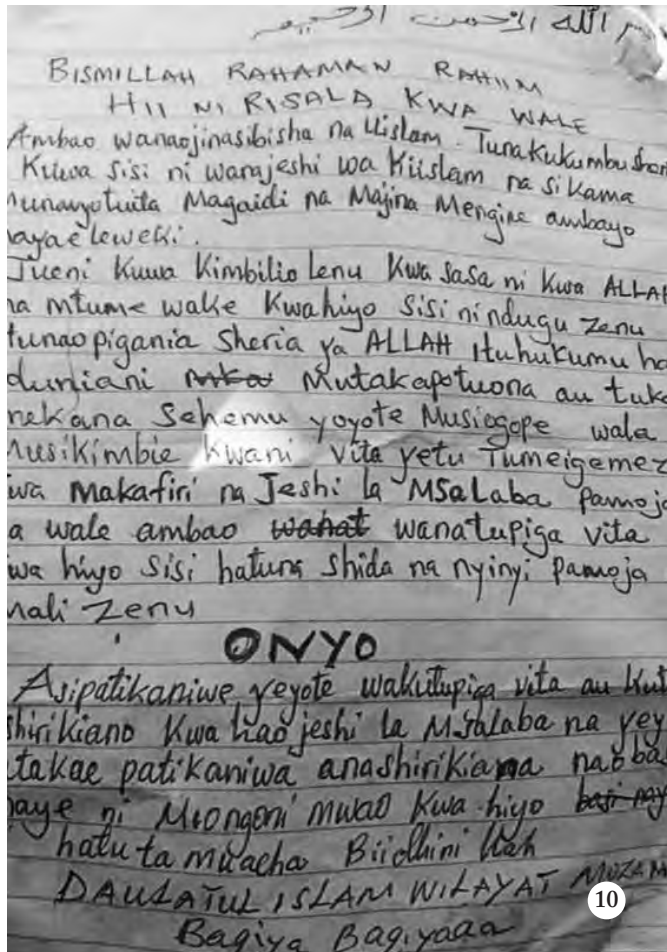 الله الرحمن الرحيم
BISMILLAH RAHAMAN RAHIIM
HII NI RISALA KWA WALE
Ambao wanaojinasibisha na Uislam. Tunakukumbushen
Kuwa sisi ni wanajeshi wa Kiislam na si kama
munavyotuita Magaidi na Majina Mengine ambayo
hayaeleweki.
Jueni Kuwa Kimbilio Lenu Kwa sasa ni kwa ALLAH
na mtume wake Kwahiyo sisi ni ndugu zenu
tunaopigania sheria ya ALLAH Ituhukumu ha
duniani Mutakapotuona au tuka
nekana Sehemu yoyote Musiogope wala
Musikimbie kwani vita yetu Tumeigemez
wa Makafiri na Jeshi la MSALABA pamoja
a wale ambao wanatupiga vita
wa hiyo sisi hatuna shida na nyinyi pamoja
mali zenu
ONYO
Asipatikaniwe yeyote wakutupiga vita au kut
shirikiano Kwa hao jeshi la Msalaba na yey
takae patikaniwa anashirikiana nao ba
naye ni Miongoni mwao Kwa hiyo
hatutamuacha Biidhini llah
DAULATUL ISLAM WILAYAT MUZAM
Bagiya Bagiyaaa
10